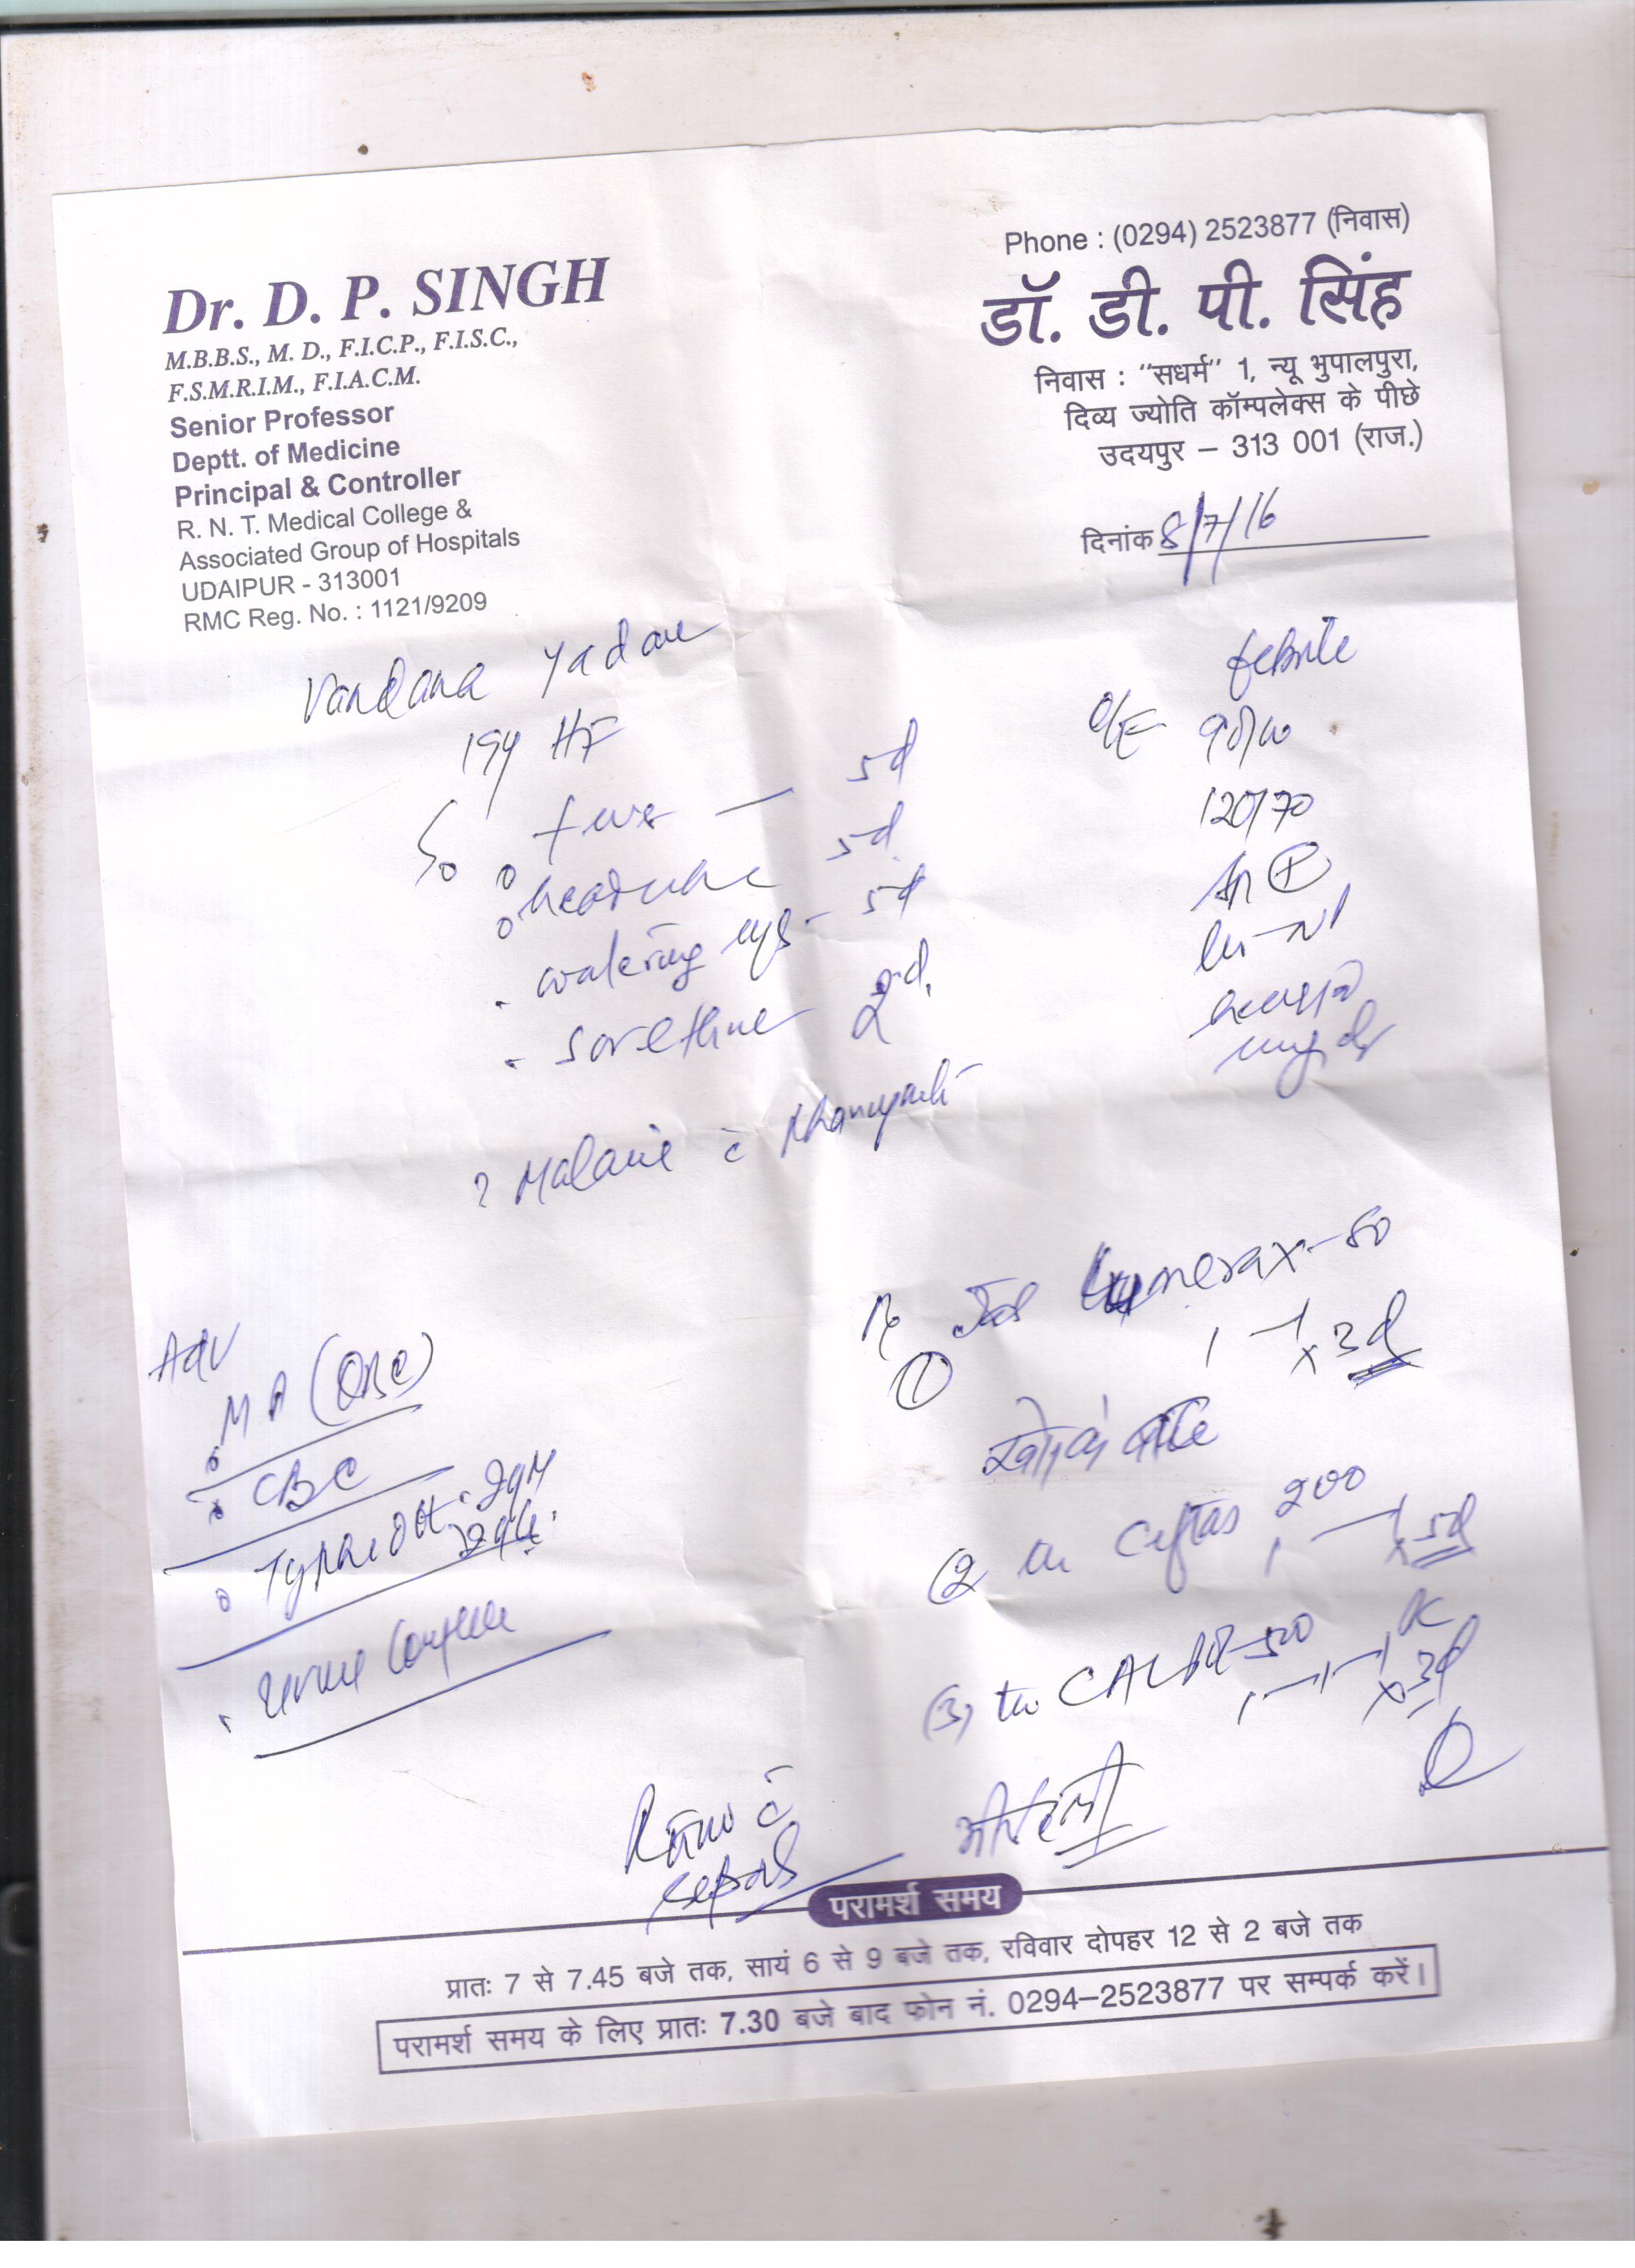 Phone : (0294) 2523877 (निवास)
Dr. D. P. SINGH
M.B.B.S., M. D., F.I.C.P., F.I.S.C.,
F.S.M.R.I.M., F.I.A.C.M.
Senior Professor
Deptt. of Medicine
Principal & Controller
R. N. T. Medical College &
Associated Group of Hospitals
UDAIPUR - 313001
RMC Reg. No. : 1121/9209
डॉ. डी. पी. सिंह
निवास : "सधर्म" 1, न्यू भुपालपुरा,
दिव्य ज्योति कॉम्पलेक्स के पीछे
उदयपुर – 313 001 (राज.)
दिनांक 8/7/16
Vandana Yadav
19y HF
fever — 5d
headache 5d
watering eyes - 5d
sorethroat 2d.
febrile
O/E 90/
120/70
? Malaria c̄ Pharyngitis
Adv
MP (QBC)
CBC
Typhidot IgM
IgG.
Urine Complete
Rx
① Tab Lumerax-80
1—1 x 3d
② Ceftas 200
1—1 x 5d
(3) CALPOL-500
1—1—1 x 3d
Review c̄
reports
परामर्श समय
प्रातः 7 से 7.45 बजे तक, सायं 6 से 9 बजे तक, रविवार दोपहर 12 से 2 बजे तक
परामर्श समय के लिए प्रातः 7.30 बजे बाद फोन नं. 0294–2523877 पर सम्पर्क करें।